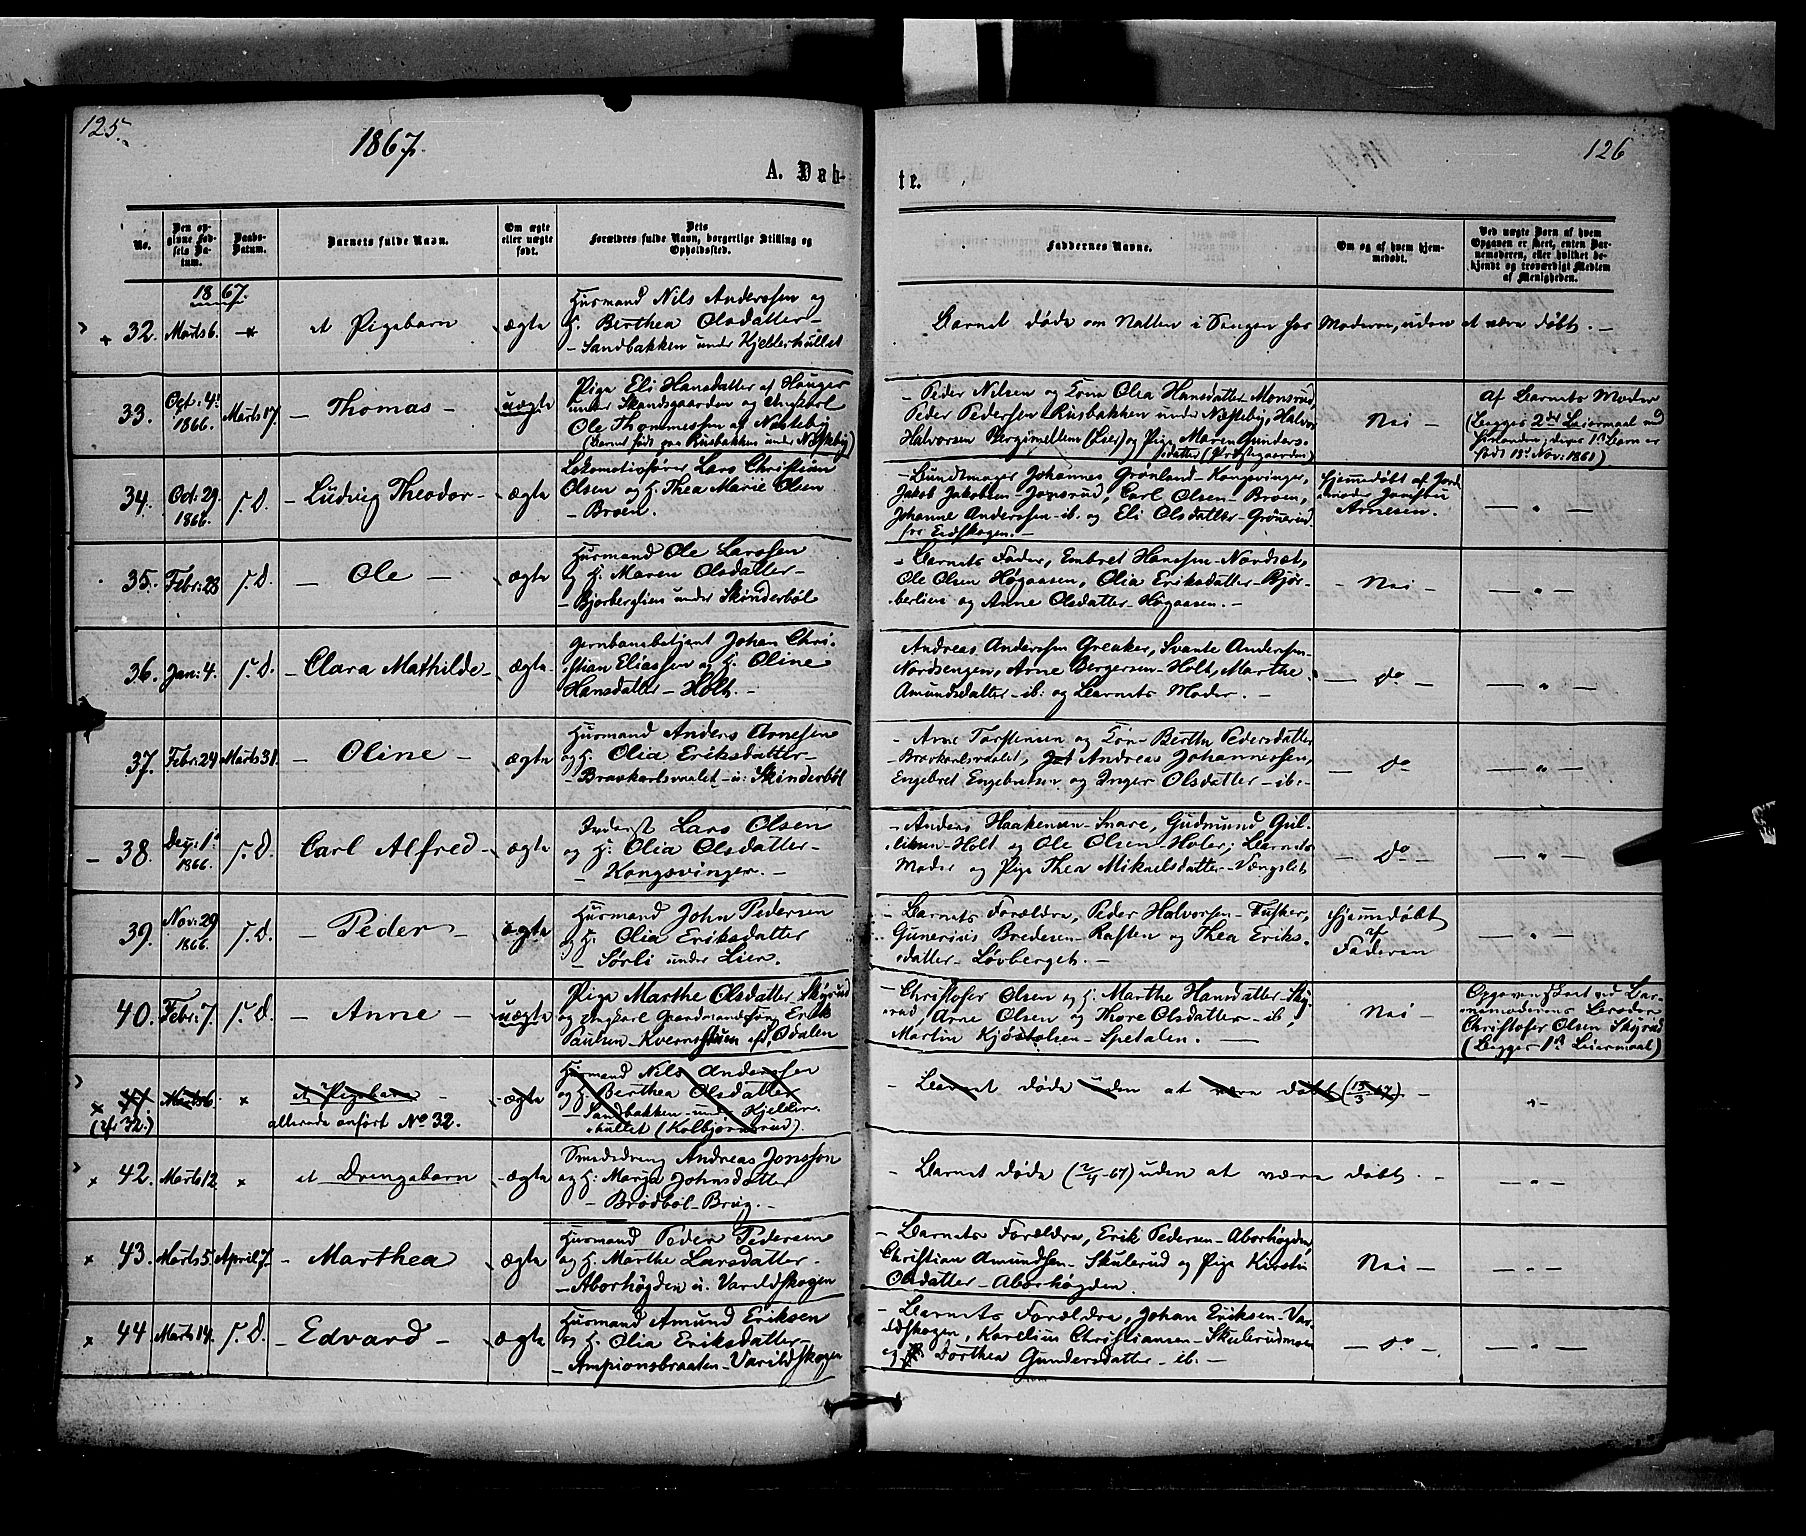 125.
1867.
126
A. Døb-
te.
No.
Den opgivne Fødsels Datum.
Daabs-Datum.
Barnets fulde Navn.
Om ægte eller uægte født.
Dets Forældres fulde Navn, borgerlige Stilling og Opholdssted.
Faddernes Navne.
Om og af hvem hjemmedøbt.
Ved uægte Børn af hvem Opgaven er skeet, enten Barnemoderen, eller hvilket bekjendt og troværdigt Medlem af Menigheden.
1867.
32. Marts 6. — et Pigebarn ægte
Husmand Nils Anderssen og
h. Berthea Olsdatter –
– Sandbakken under Kjelderhullet
Barnet døde om Natten i Sengen hos Moderen, uden at være døbt. –
33. Oct: 4. 1866. Marts 17. – Thomas – uægte
Pige Eli Hansdatter af Hauger
under Skandsgaarden og Ungkarl
Ole Thommessen af Næstebÿ
(Barnet født paa Rusbakken under Næstebÿ)
– Peder Nilsen og Kone Olia Hansdatter Monsrud,
Peder Pedersen Rusbakken under Næstebÿ, Halvor
Halvorsen Bergimellem (Lier) og Pige Maren Gunders-
datter (Præstegaarden)
Nei –
Af Barnets Moder
(Begges 2det Leiermaal med
hinanden; deres 1ste Barn er
født 13de Nov: 1861)
34. Oct: 29. 1866. s. D. – Ludvig Theodor – ægte
Lokomotivfører Lars Christian
Olsen og h. Thea Marie Olsen
– Broen.
– Bundtmager Johannes Grønland – Kongsvinger,
Jakob Jakobsen – Jonsrud, Carl Olsen – Broen,
Johanne Anderssen – ib. og Eli Olsdatter – Grønerud
fra Eidskogen. –
Hjemmedøbt af Jorde-
moder
Arnesen.
— „ —
35. Febr: 23 s. D. – Ole – ægte
Husmand Ole Larssen
og h. Maren Olsdatter –
– Bjørberglien under Skinderbøl
– Barnets Fader, Embret Hanssen – Nordsæt,
Ole Olsen Høgaasen, Olia Eriksdatter – Bjør-
berlien og Anne Olsdatter – Høgaasen. –
– Nei –
— „ —
36. Jan: 4. s. D. – Clara Mathilde – ægte
Jernbanebetjent Johan Chri-
stian Eliassen og h. Oline
Hansdatter – Holt. –
Andreas Anderssen Greaker, Svante Anderssen –
Nordsengen, Arne Bergersen – Holt, Marthe
Amundsdatter – ib: og Barnets Moder. –
— do —
— „ —
37. Febr: 24 Marts 31. – Oline – ægte
Husmand Anders Arnesen
og h. Olia Eriksdatter –
– Bravkarlsvalet – u: Skinderbøl
– Arne Torstensen og Kone Berthe Pedersdatter
Bravkarlsvalet, Andreas Johannessen,
Engebret Engebretsen og Inger Olsdatter – ib: –
— do —
— „ —
38. Dec: 1. 1866. s. D. Carl Alfred – ægte
Inderst Lars Olsen
og h: Olia Olsdatter –
– Kongsvinger. –
– Anders Haakensen – Snare, Gudmund Gul-
liksen – Holt og Ole Olsen – Holer; Barnets
Moder og Pige Thea Mikaelsdatter – Vængslet
— do —
— „ —
39. Nov: 29 1866. s. D. – Peder – ægte
Husmand John Pedersen
og h. Olia Eriksdatter
– Sørli under Lier.
– Barnets Forældre, Peder Halvorsen – Fusker,
Gunerius Bredesen – Raften og Thea Eriks-
datter – Løvberget. –
Hjemmedøbt
af
Faderen
— „ —
40. Febr: 7. s. D. – Anne – uægte
Pige Marthe Olsdatter – Skÿrud
og Ungkarl Gaardmandssøn Erik
Paulsen – Kvernstuen af Odalen
– Christofer Olsen og h. Marthe Hansdatter – Skÿ-
rud, Arne Olsen og Thore Olsdatter – ib,
Martin Kjøstolsen – Spetalen. –
Nei –
Opgaven skeet ved Bar-
nemoderens Broder
Christofer Olsen Skÿrud
(Begges 1ste Leiermaal)
41. (cfr 32.) Marts 6 × et Pigebarn – ægte
allerede anført No 32.
Husmand Nils Anderssen
og h. Berthea Olsdatter
Sandbakken under Kjelder-
hullet (Kolbjørnsrud).
– Barnet døde uden at være døbt (13/3 67) –
– „ –
42. Marts 12 × et Drengebarn ægte
Smededreng Andreas Jonsson
og h: Marja Johnsdatter
– Brødbøl – Brug. –
– Barnet døde (2/4 – 67) uden at være døbt. –
— „ —
43. Marts 5. April 7. – Marthea ægte
Husmand Peder Pedersen
og h. Marthe Larsdatter –
– Aborhøgden u. Varildskogen
– Barnets Forældre, Erik Pedersen – Aborhøgden,
Christian Amundsen – Skulerud og Pige Kirsti
Olsdatter – Aborhøgden.
Nei –
— „ —
44. Marts 14. s. D. – Edvard – ægte
Husmand Amund Eriksen
og h. Olia Eriksdatter –
– Ampionsbraaten – Varildskogen
– Barnets Forældre, Johan Eriksen – Va-
rildskogen, Karelius Christiansen – Skulerudmoen
og Dorthea Gundersdatter – ib. –
— do —
— „ —